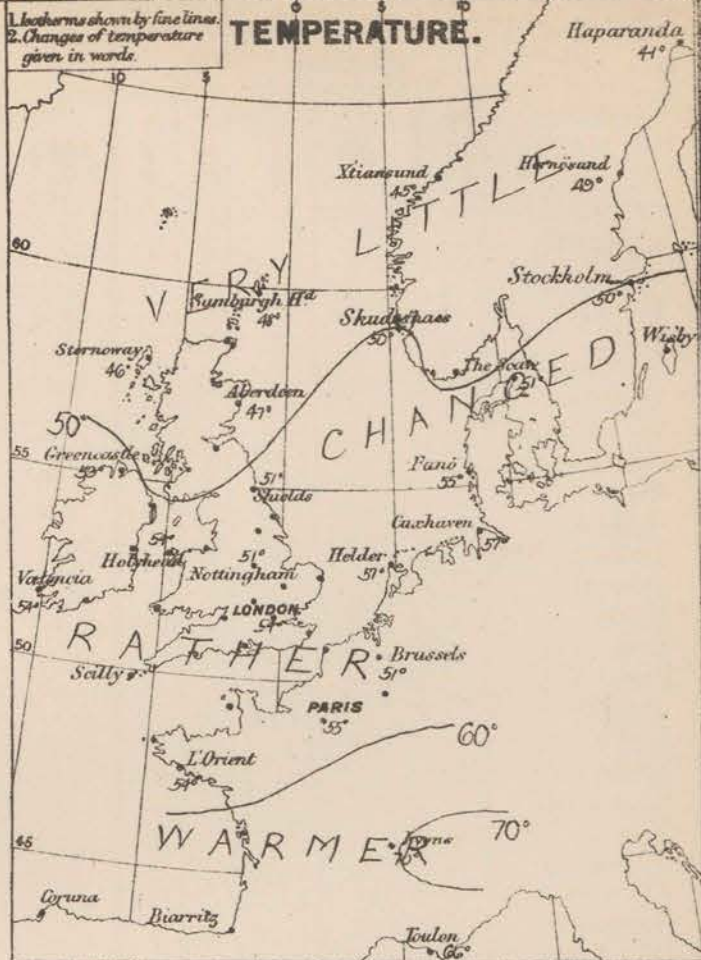 1. Isotherms shown by fine lines.
2. Changes of temperature
given in words.
TEMPERATURE.
10 5 0 5 10
Haparanda
41°
Xtiansund
45°
Hernösand
49°
LITTLE
60
VERY
Sumburgh Hd
48°
Stockholm
50°
Skudesnaes
50°
Wisby
Stornoway
46°
The Scaw
51
Aberdeen
47°
CHANGED
50°
55
Greencastle
53°
51°
Shields
Fanö
55°
Cuxhaven
57°
Holyhead
51°
Nottingham
Helder
57°
Valencia
54°
LONDON
RATHER
50
Scilly
Brussels
51°
PARIS
55°
60°
L'Orient
54°
70°
WARMER
45
Lyons
Coruna
Biarritz
Toulon
66°